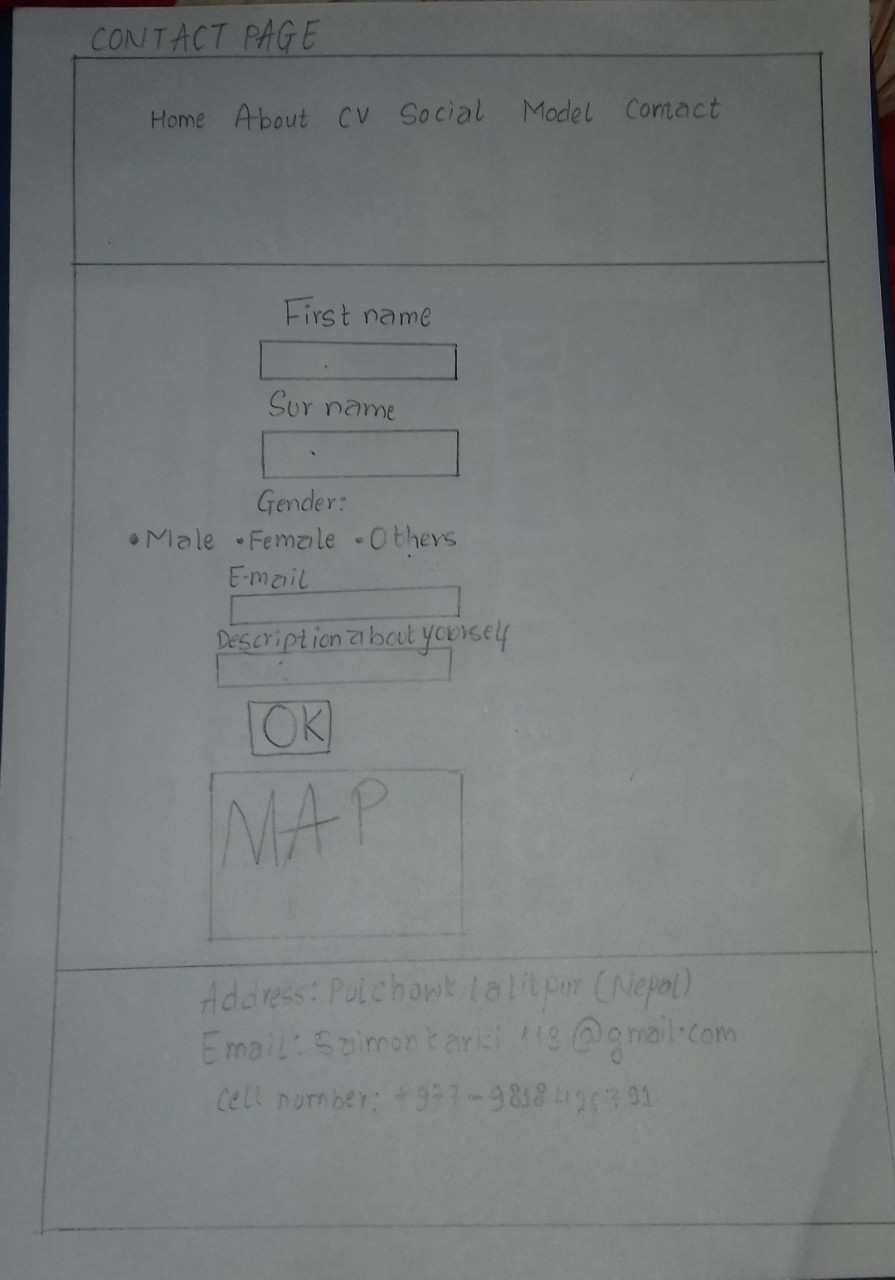 CONTACT PAGE
Home About CV Social Model Contact
First name
Sur name
Gender:
• Male • Female • Others
E-mail
Description about yourself
OK
MAP
Address: Pulchowk, Lalitpur (Nepal)
Email: @gmail.com
Cell number: +977-